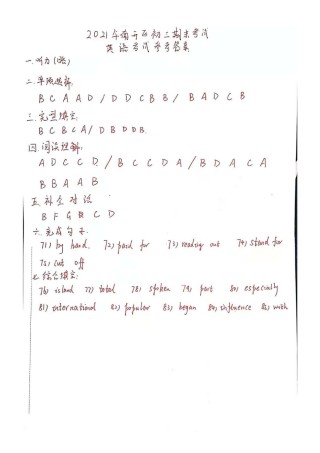 2021年南开区初三期末考试
英语考试参考答案
一.听力(略)
二.单项选择:
B C A A D / D C C B B / B A D C B
三.完型填空:
B C B C A / D B D D B
四.阅读理解:
A D C C D / B C C D A / B D A C A
B B A A B
五.补全对话
B F G E C D
六.完成句子:
71) by hand. 72) paid for 73) reading out 74) stand for
75) cut off
七.综合填空:
76) island 77) total 78) spoken 79) part 80) especially
81) international 82) popular 83) began 84) influence 85) with